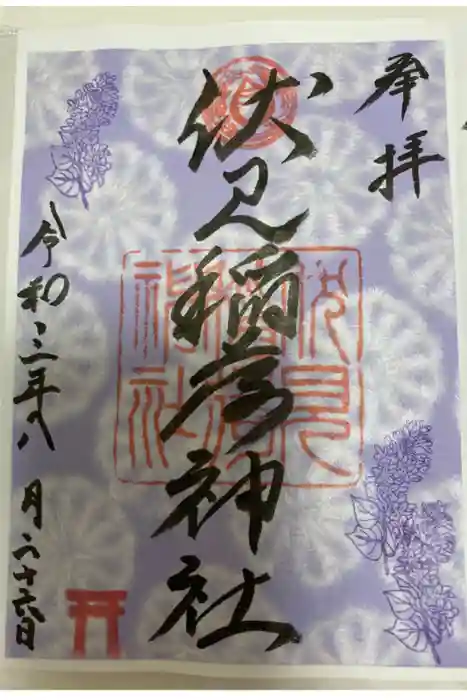 奉拝
伏見稲荷神社
伏見
稲荷
神社
令和三年八月二十六日